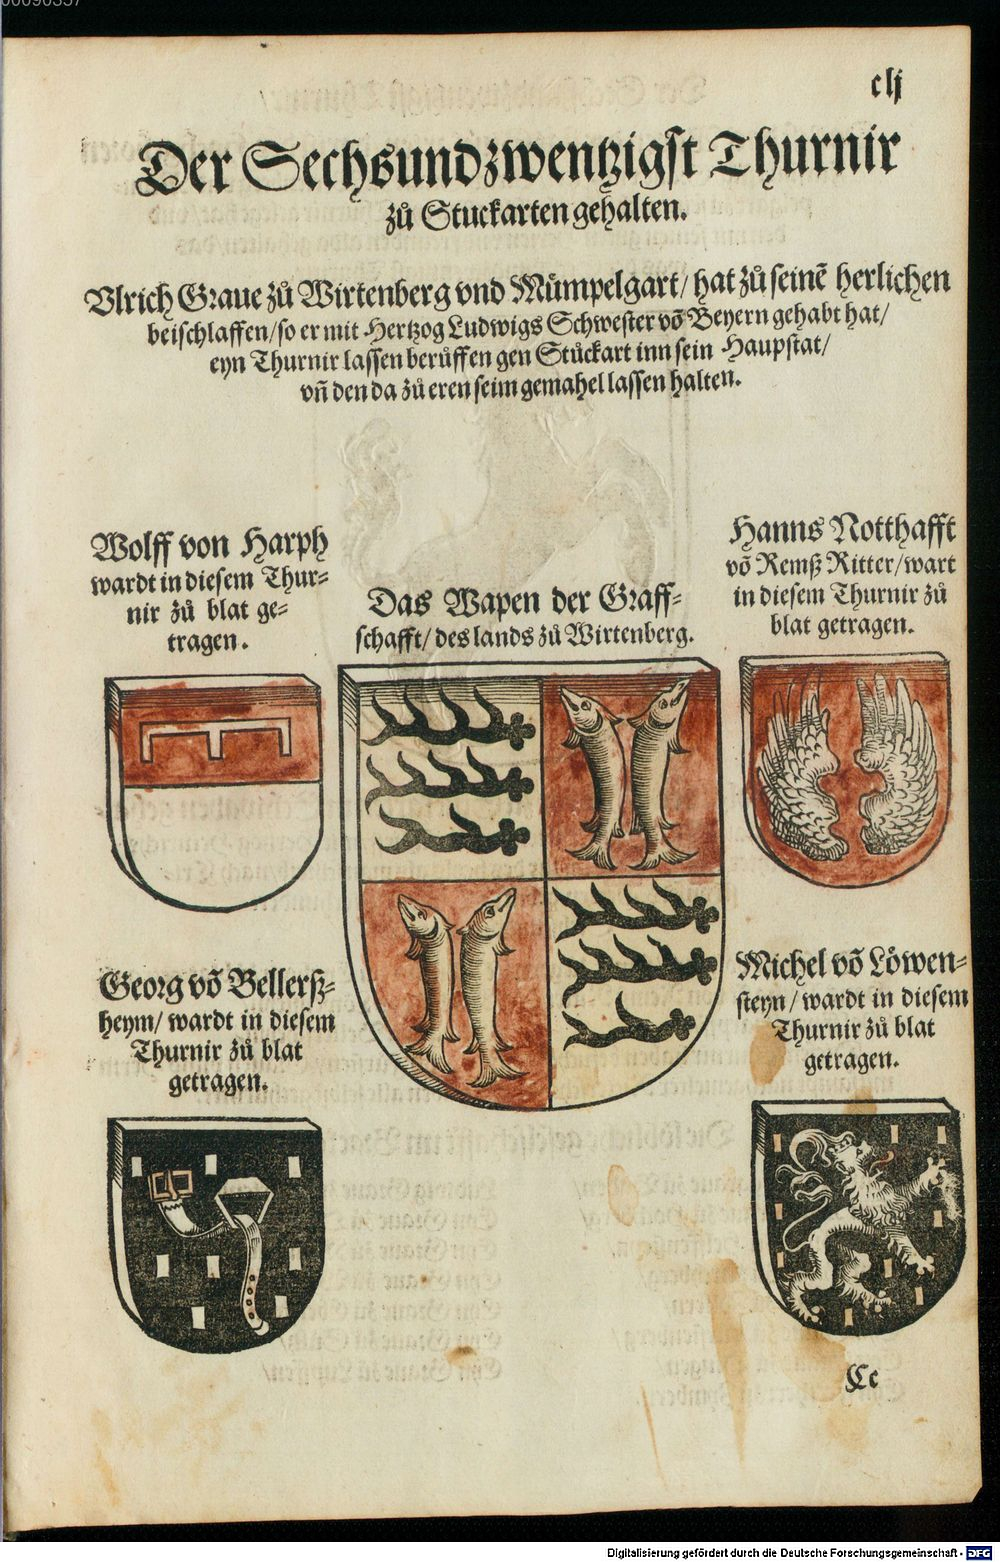 clj
Der Sechsundzwentzigst Thurnir
zů Stuckarten gehalten.
Vlrich Graue zů Wirtenberg vnd Mümpelgart/ hat zů seinē herlichen
beischlaffen/ so er mit Hertzog Ludwigs Schwester võ Beyern gehabt hat/
eyn Thurnir lassen berůffen gen Stůckart inn sein Haupstat/
vñ den da zů eren seim gemahel lassen halten.
Wolff von Harph
wardt in diesem Thur-
nir zů blat ge-
tragen.
Das Wapen der Graff-
schafft/ des lands zů Wirtenberg.
Hanns Notthafft
võ Remß Ritter/ wart
in diesem Thurnir zů
blat getragen.
Georg võ Bellerß-
heym/ wardt in diesem
Thurnir zů blat
getragen.
Michel võ Löwen-
steyn/ wardt in diesem
Thurnir zů blat
getragen.
Cc
Digitalisierung gefördert durch die Deutsche Forschungsgemeinschaft - DFG